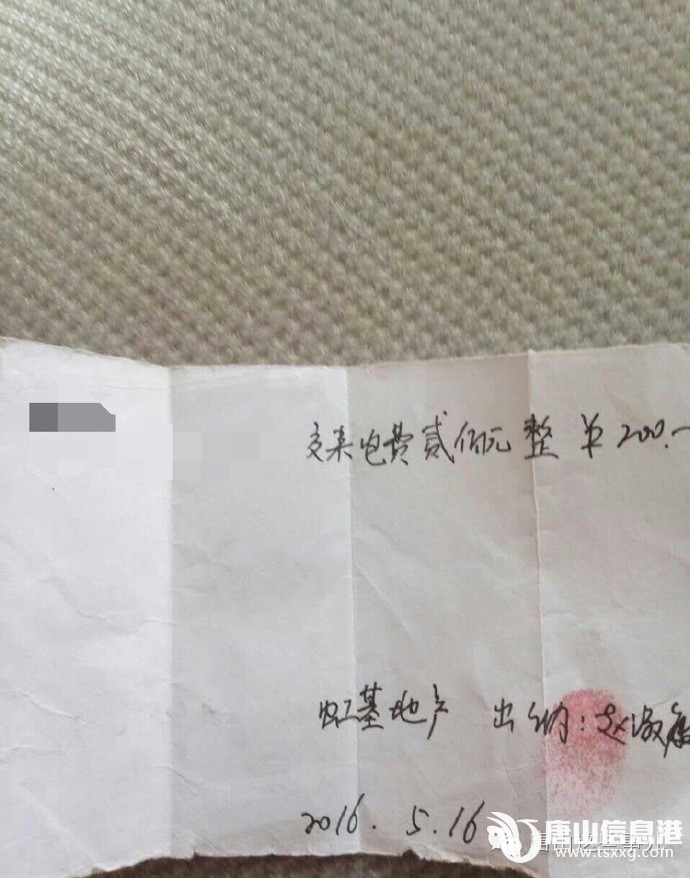 交来电费贰佰元整 ¥200.-
虹基地产 出纳:赵淑
2016.5.16
唐山信息港
www.tsxxg.com